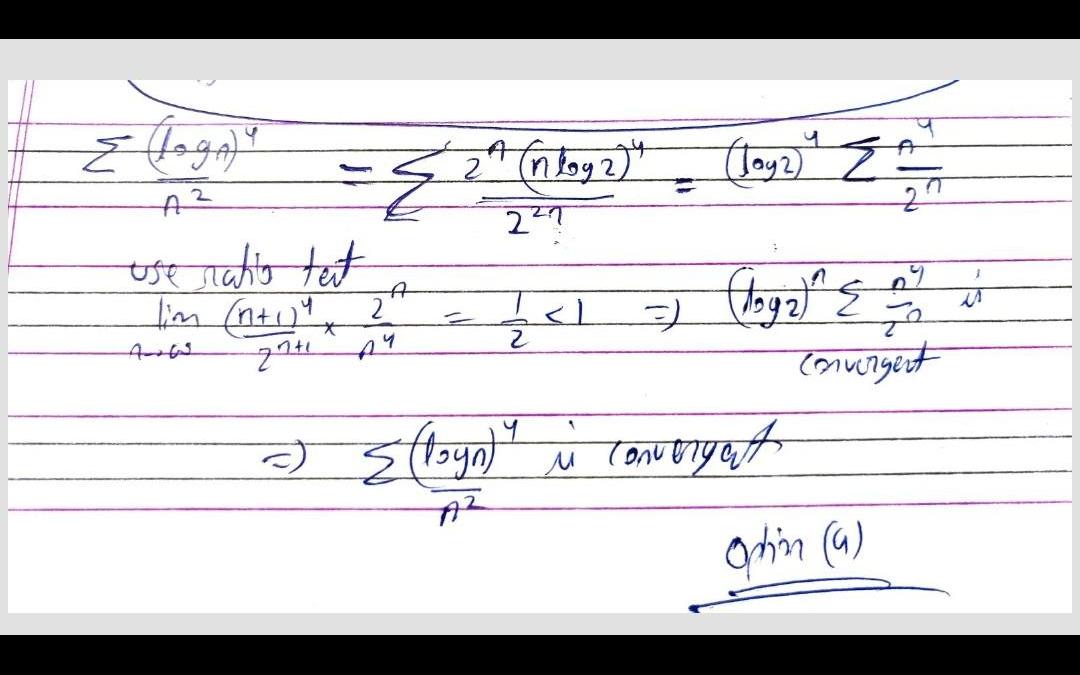 Σ (log n)^4 / n^2 = Σ 2^n (n log 2)^4 / 2^{2n} = (log 2)^4 Σ n^4 / 2^n
use ratio test
lim n→∞ (n+1)^4 / 2^{n+1} × 2^n / n^4 = 1/2 < 1 ⇒ (log 2)^n Σ n^4 / 2^n is
convergent
⇒ Σ (log n)^4 / n^2 is convergent
Option (a)